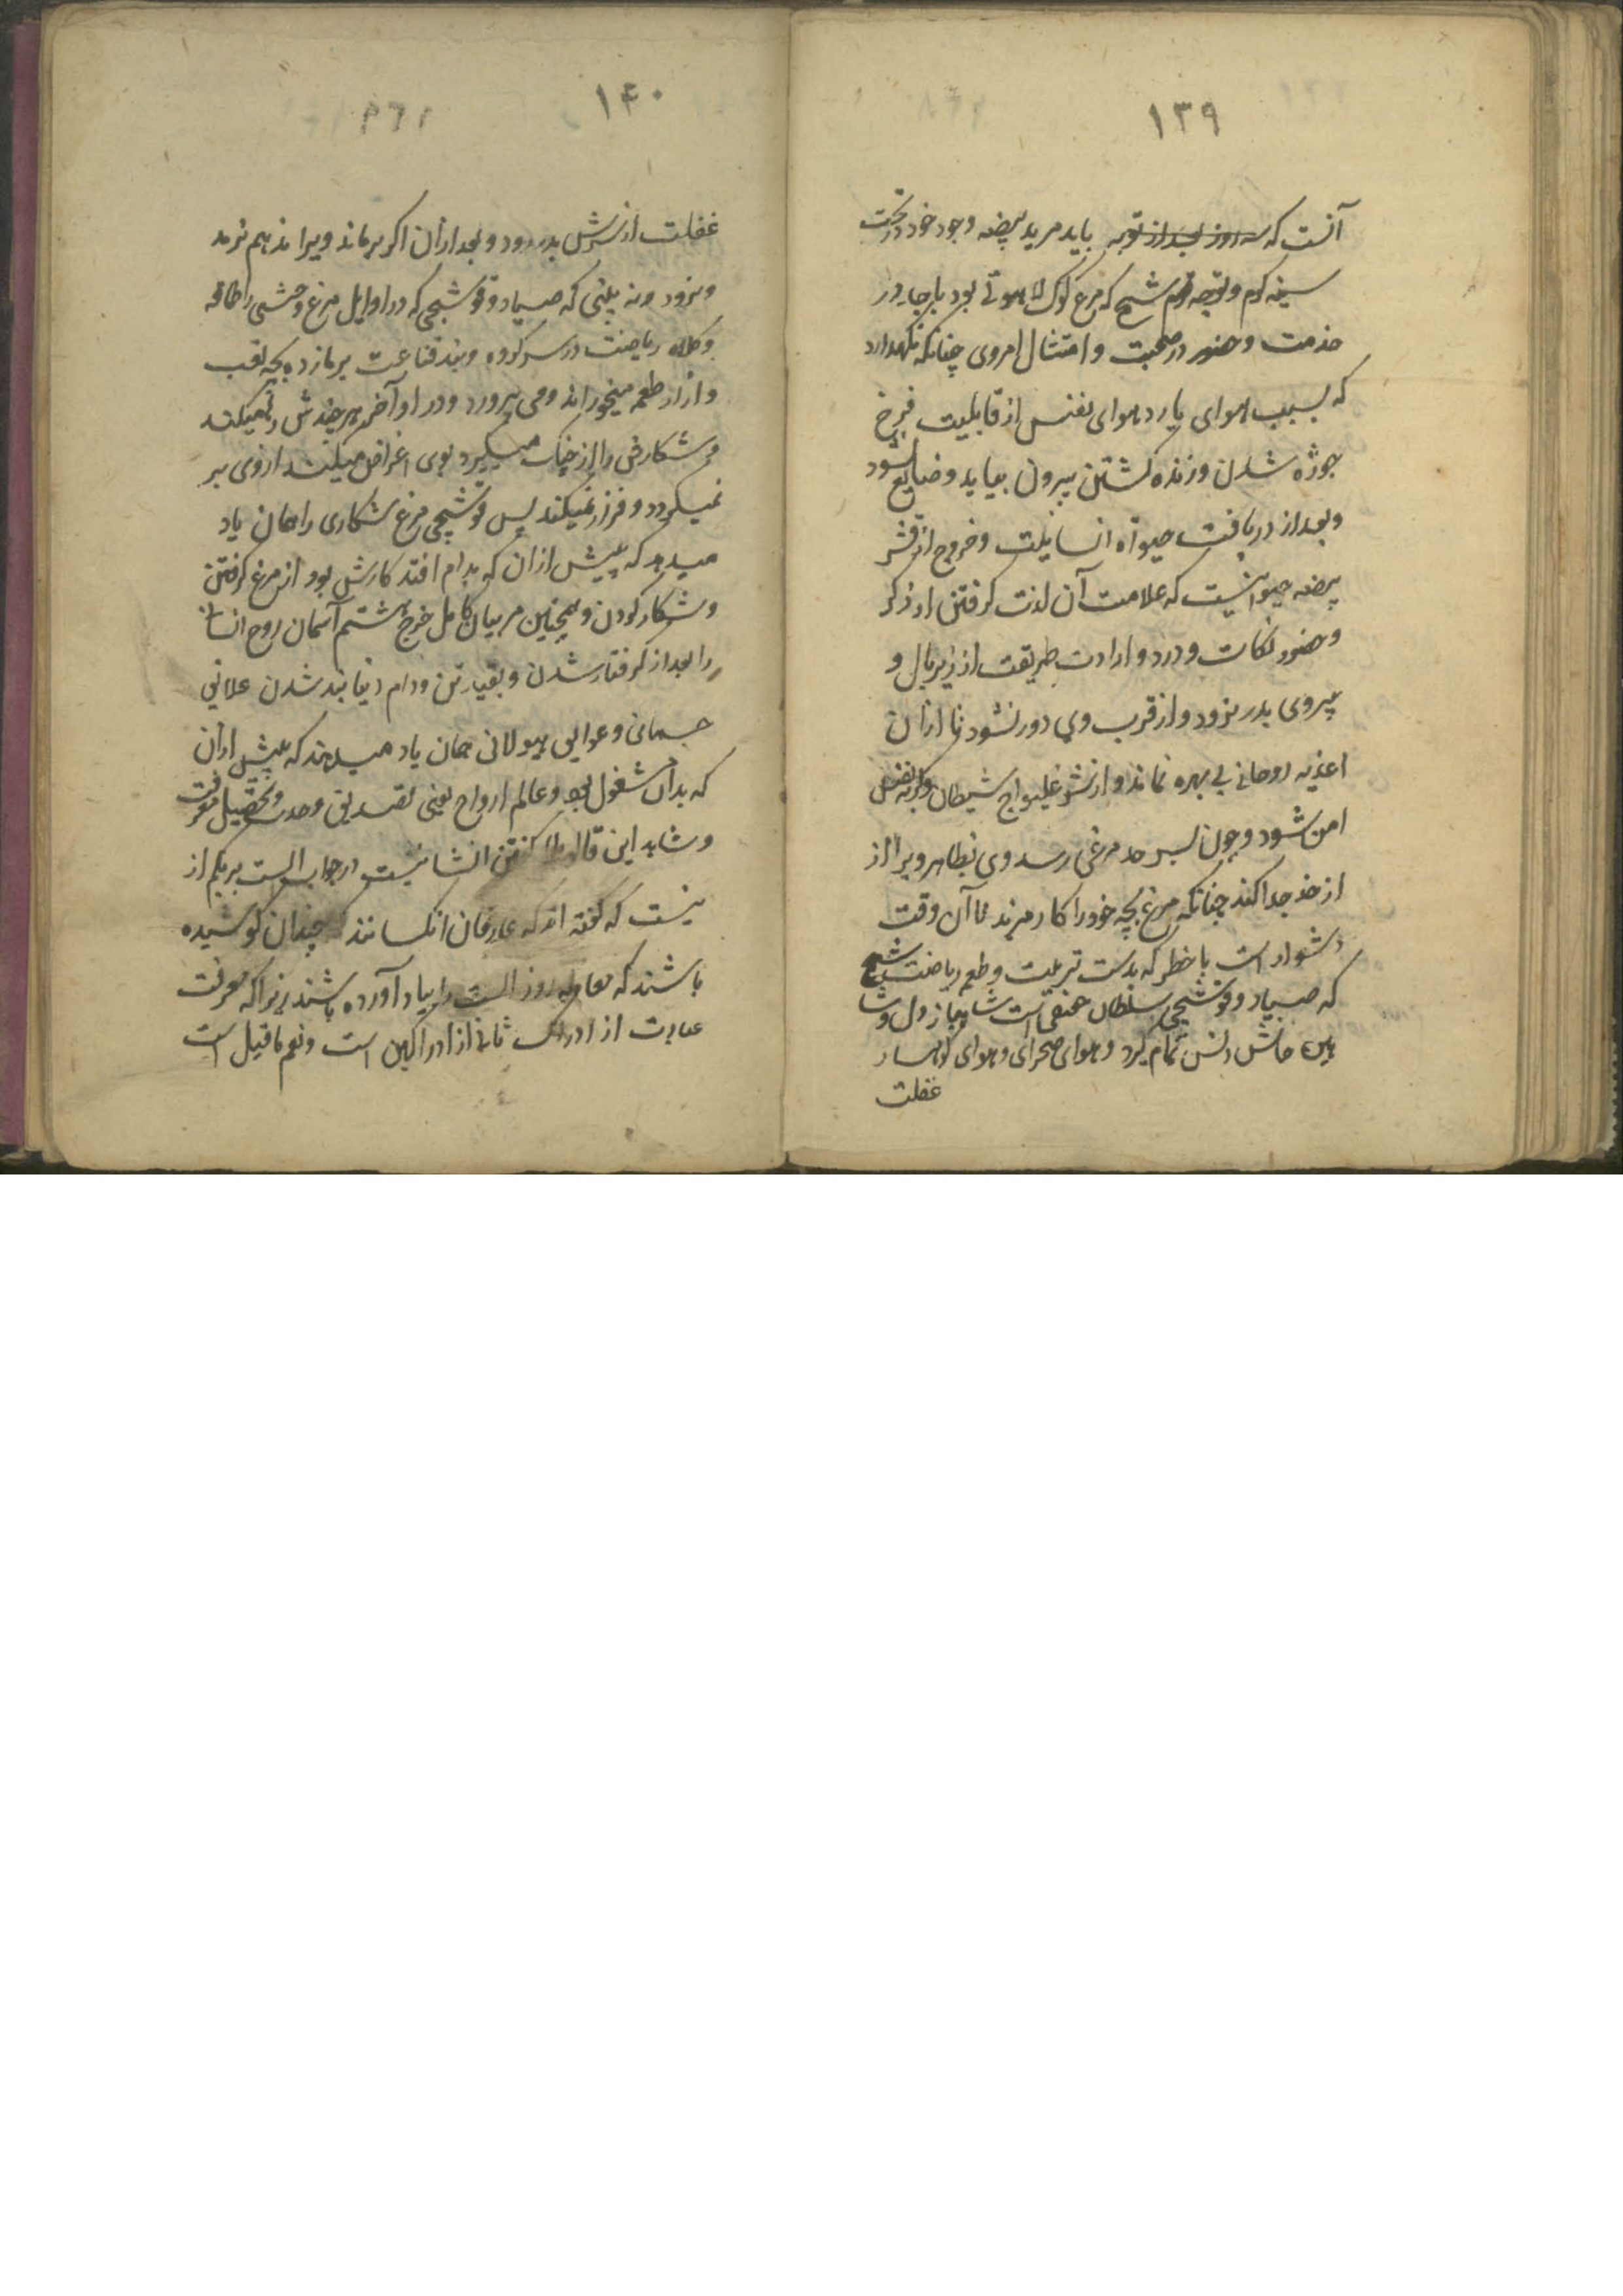 ١٣٩
آنست که سه روز بعد از توبه باید مرید بیضه وجود خود در تحت
سینه کرم و توجه شیخ که مرغ لاهوتی بود بارجا در
خدمت و حضور در صحبت و امتثال امر وی چنانکه نکهدارد
که بسبب هوای یا رد هوای نفس از قابلیت فرخ
جوژه شدن و زنده کشتن بیرون بیاید و ضایع شود
و بعد از دریافت حیوة انسانیت و خروج از قشر
بیضه حیوانیت که علامت آن لذت کرفتن از ذکر
و حضور نکات و درد و ارادت طریقت از زیر بال و
پیروی بدر نرود و از قرب وی دور نشود تا از آن
اغذیه روحانی بی بهره نماند و از غلیواج شیطان و کربه نفس
امن شود و چون بسر حد مرغی رسد وی بظاهر ویرا از
از خود جدا کند چنانکه مرغ بچه خود را تا آن وقت
دشوار است با خطر که بدست تربیت و طعم ریاضت شیخ
که صیاد و قوشچی سلطان حقیقی است شاهباز دل
تمام کرد و هوای صحرای و هوای کوهسار
غفلت
١۴٠
غفلت از سرش بدر رود و بعد از آن اکر برماند ویرا هم نرمد
و نرود نه بینی که صیاد و قوشچی که در اوایل مرغ وحشی را طاقه
و کلاه ریاضت در سر کرده و بند قناعت بر پا زده بچه تعب
و آزار طعمه میخوراند و می پرورد و در اوآخر هر چندش رها میکند
و شکارش را از چنک میکیرد بوی اعراض میکند از وی بر
نمیکردد و فرار نمیکند پس قوشچی مرغ شکاری را همان یاد
میدهد که پیش از آن که بدام افتد کارش بود از مرغ کرفتن
و شکار کردن و همچنین مربیان کامل آسمان روح انسانی
را بعد از کرفتار شدن و بقید تن و دام دنیا بند شدن علایق
جسمانی و عوایق هیولانی همان یاد میدهند که پیش از آن
که بدان مشغول بود و عالم ارواح یعنی تصدیق وحدت و تحصیل معرفت
و شاهد این کفتن در جواب الست بربکم از
نیست که کفته اند که عارفان آنکسانند که چندان کوشیده
باشند که معامله روز الست را بیاد آورده باشند زیرا که معرفت
عبارت از ادراک ثانی از ادراکین است و نعم ما قیل است